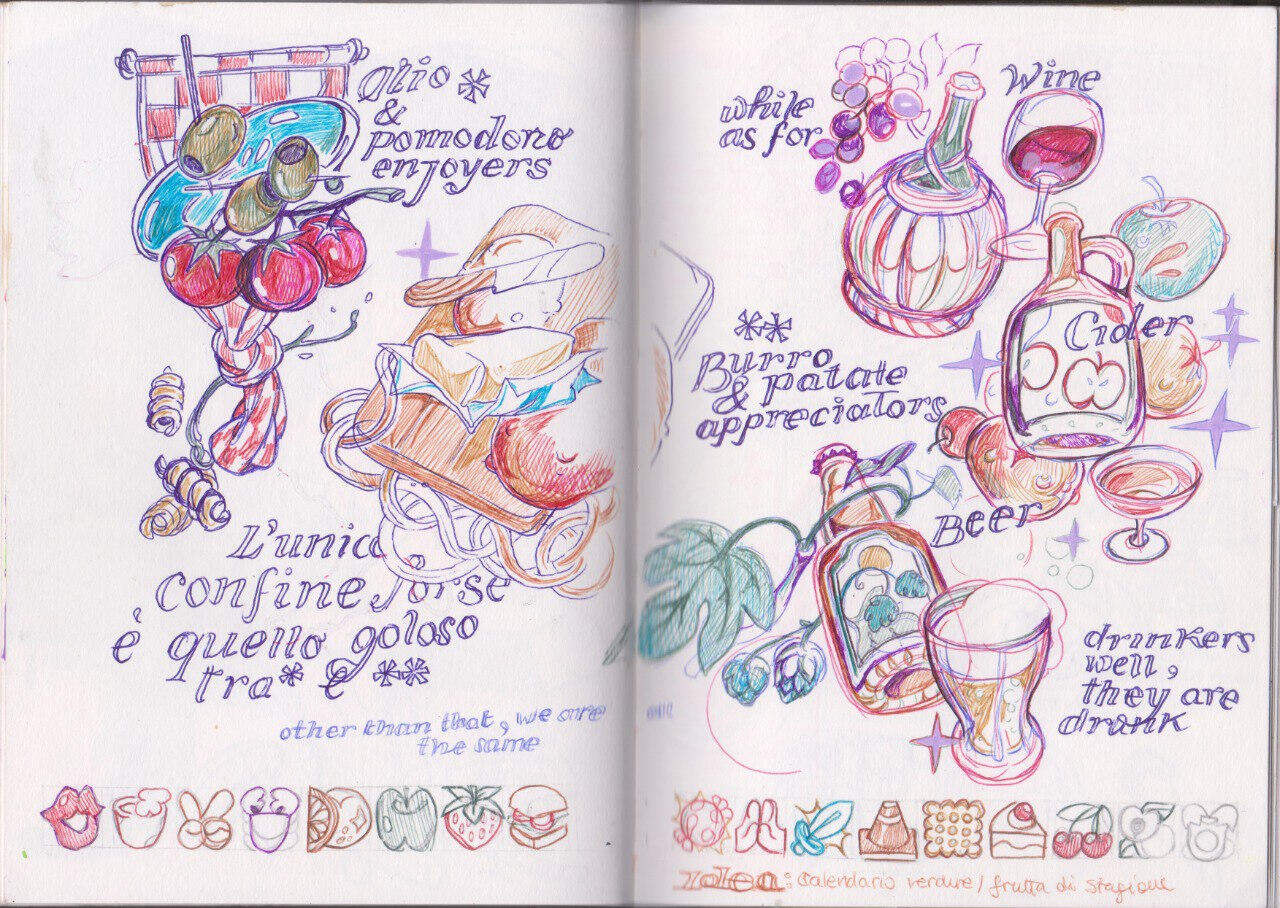 Olio *
&
pomodoro
enjoyers
L'unico
confine forse
è quello goloso
tra* e **
other than that, we are
the same
while
as for
Wine
Cider
**
Burro
& patate
appreciators
Beer
drinkers
well,
they are
drunk
idea: Calendario verdure/frutta di stagione